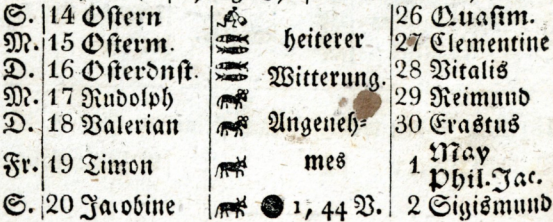 S. 14 Ostern 26 Quasim.
M. 15 Osterm. heiterer 27 Clementine
D. 16 Osterdnst. Witterung. 28 Vitalis
M. 17 Rudolph 29 Reimund
D. 18 Valerian Angeneh= 30 Erastus
Fr. 19 Timon mes 1 May Phil. Jac.
S. 20 Jacobine 1, 44 V. 2 Sigismund